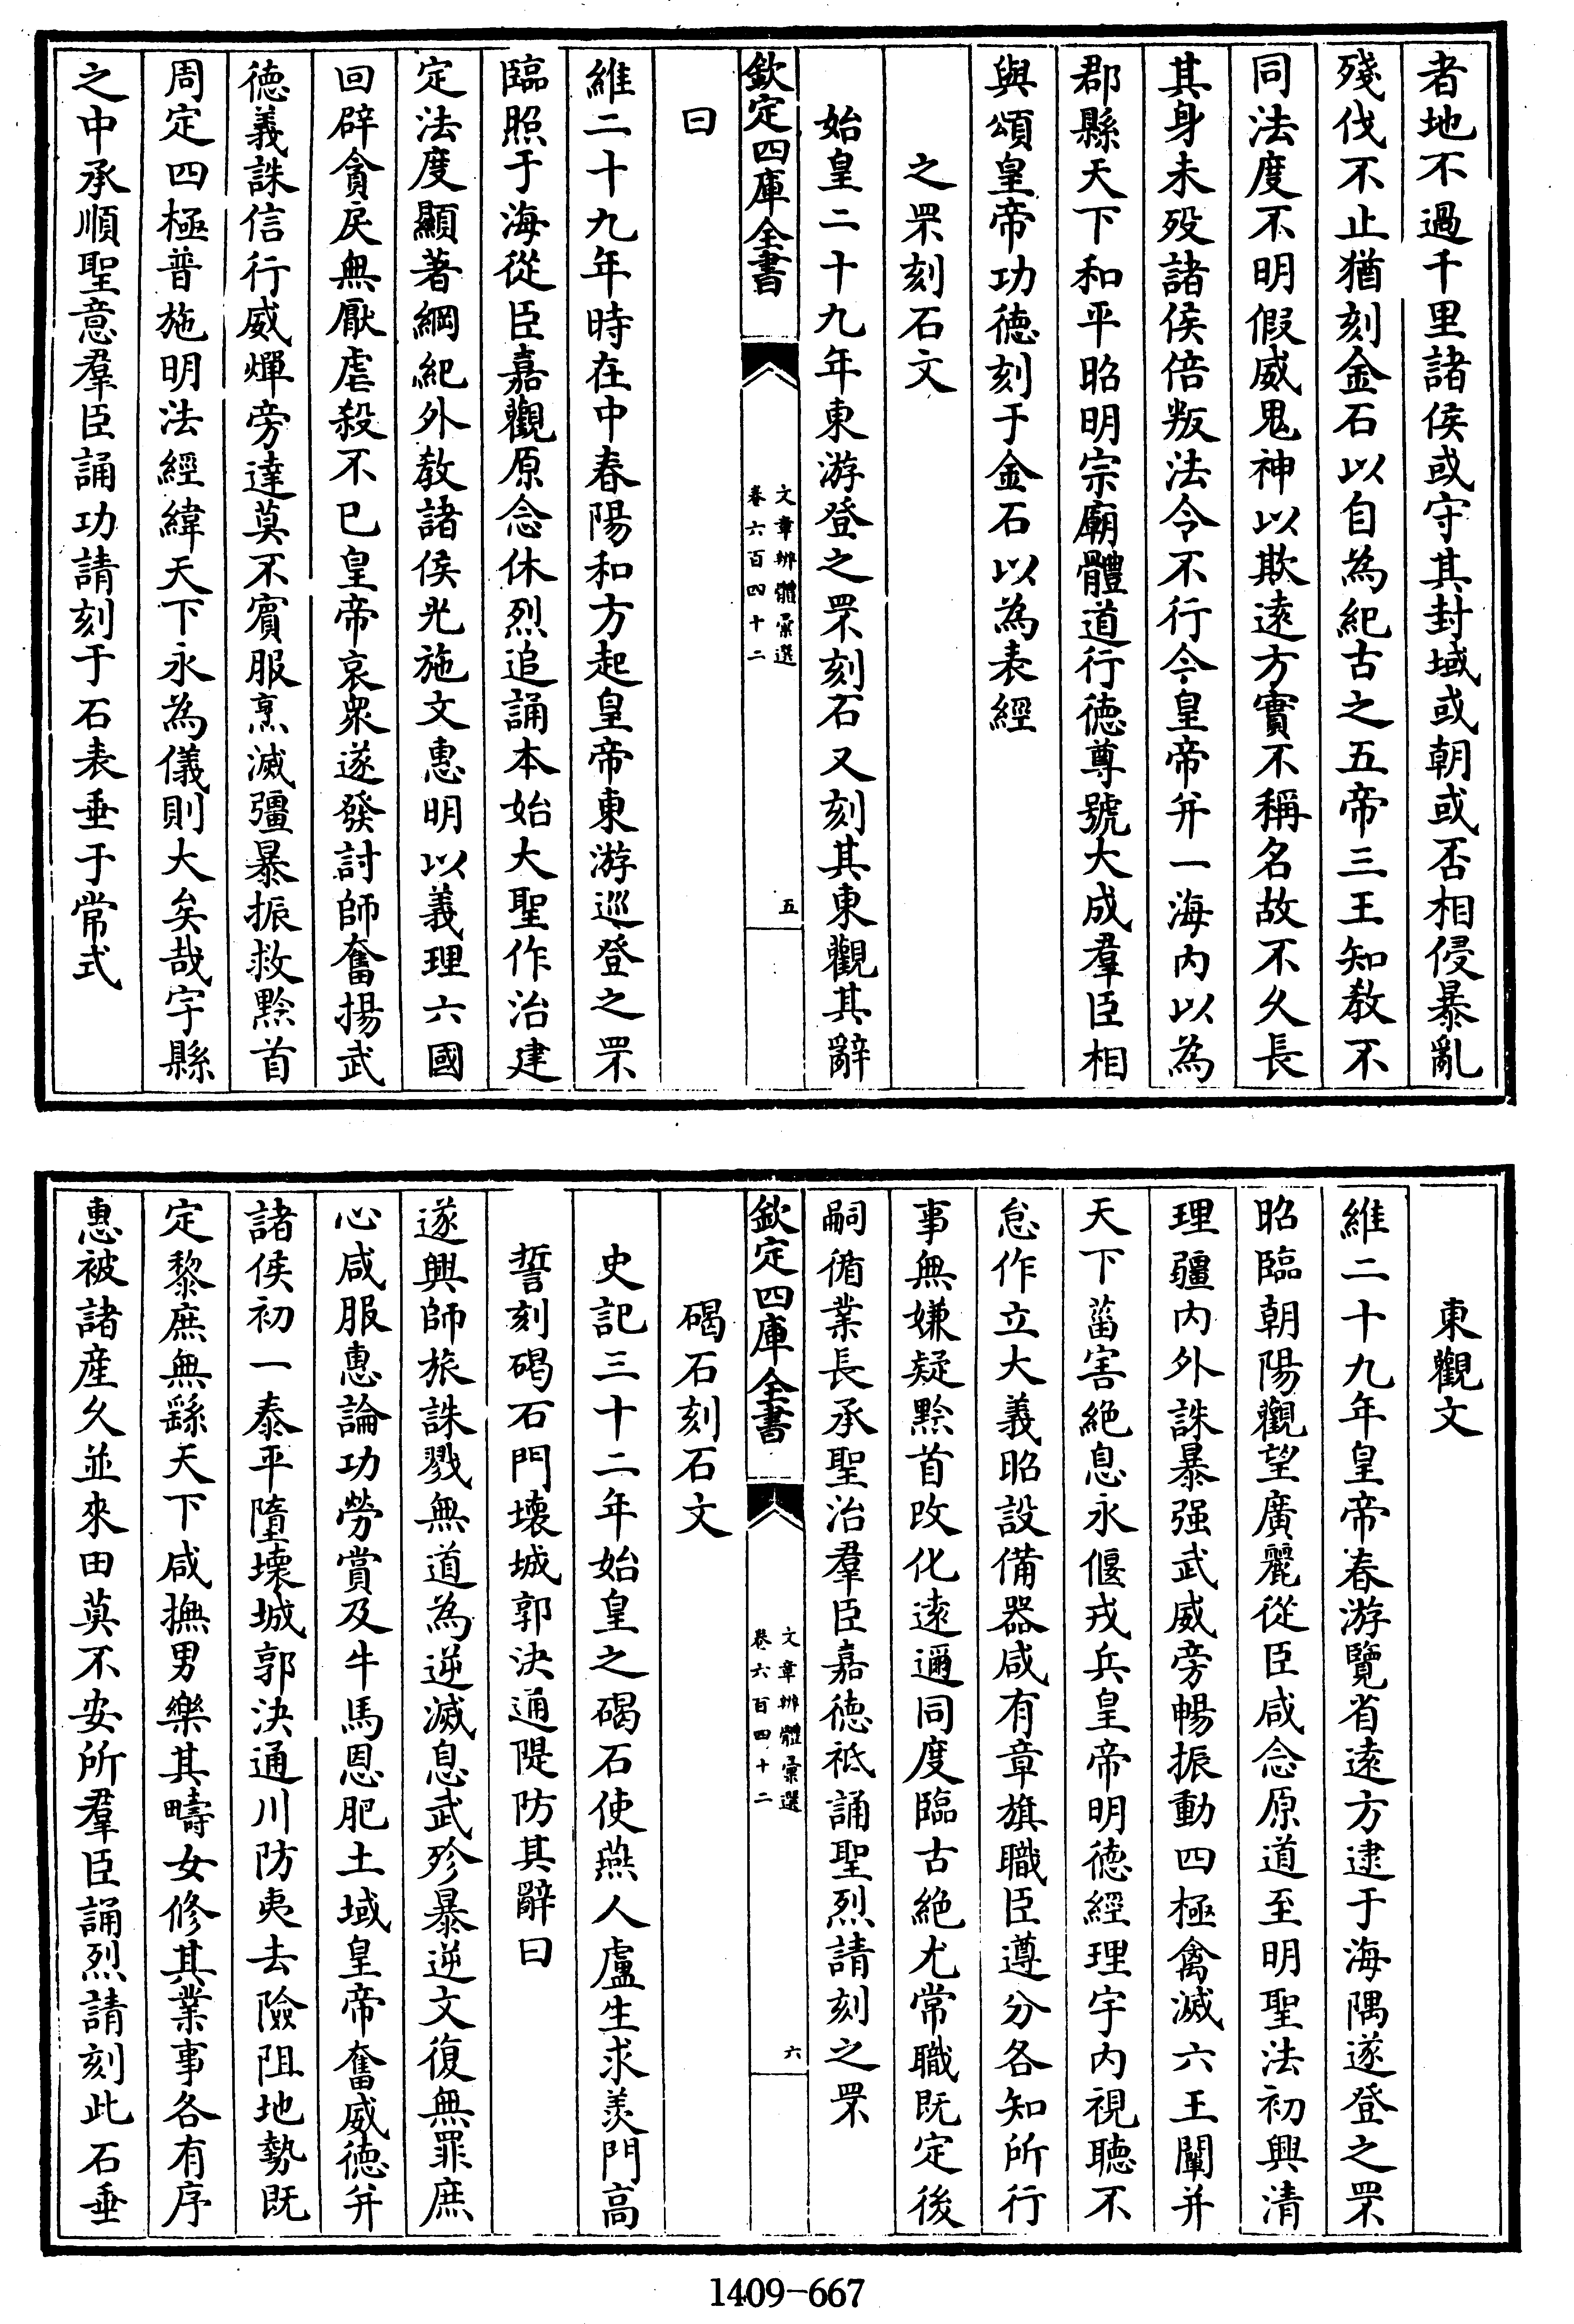 者地不過千里諸侯或守其封域或朝或否相侵暴亂
殘伐不止猶刻金石以自為紀古之五帝三王知教不
同法度不明假威鬼神以欺遠方實不稱名故不久長
其身未歿諸侯倍叛法令不行今皇帝并一海内以為
郡縣天下和平昭明宗廟體道行德尊號大成羣臣相
與頌皇帝功德刻于金石以為表經
之罘刻石文
始皇二十九年東游登之罘刻石又刻其東觀其辭
欽定四庫全書
文章辨體彙選
卷六百四十二
五
曰
維二十九年時在中春陽和方起皇帝東游巡登之罘
臨照于海從臣嘉觀原念休烈追誦本始大聖作治建
定法度顯著綱紀外教諸侯光施文惠明以義理六國
回辟貪戾無厭虐殺不已皇帝哀衆遂發討師奮揚武
德義誅信行威燀旁達莫不賓服烹滅彊暴振救黔首
周定四極普施明法經緯天下永為儀則大矣哉宇縣
之中承順聖意羣臣誦功請刻于石表垂于常式
東觀文
維二十九年皇帝春游覽省遠方逮于海隅遂登之罘
昭臨朝陽觀望廣麗從臣咸念原道至明聖法初興清
理疆内外誅暴强武威旁暢振動四極禽滅六王闡并
天下菑害絶息永偃戎兵皇帝明德經理宇内視聽不
怠作立大義昭設備器咸有章旗職臣遵分各知所行
事無嫌疑黔首改化遠邇同度臨古絶尤常職既定後
嗣循業長承聖治羣臣嘉德祗誦聖烈請刻之罘
欽定四庫全書
文章辨體彙選
卷六百四十二
六
碣石刻石文
史記三十二年始皇之碣石使燕人盧生求羨門高
誓刻碣石門壞城郭決通隄防其辭曰
遂興師旅誅戮無道為逆滅息武殄暴逆文復無罪庶
心咸服惠論功勞賞及牛馬恩肥土域皇帝奮威德并
諸侯初一泰平墮壞城郭決通川防夷去險阻地勢既
定黎庶無繇天下咸撫男樂其疇女修其業事各有序
惠被諸産久並來田莫不安所羣臣誦烈請刻此石垂
1409-667